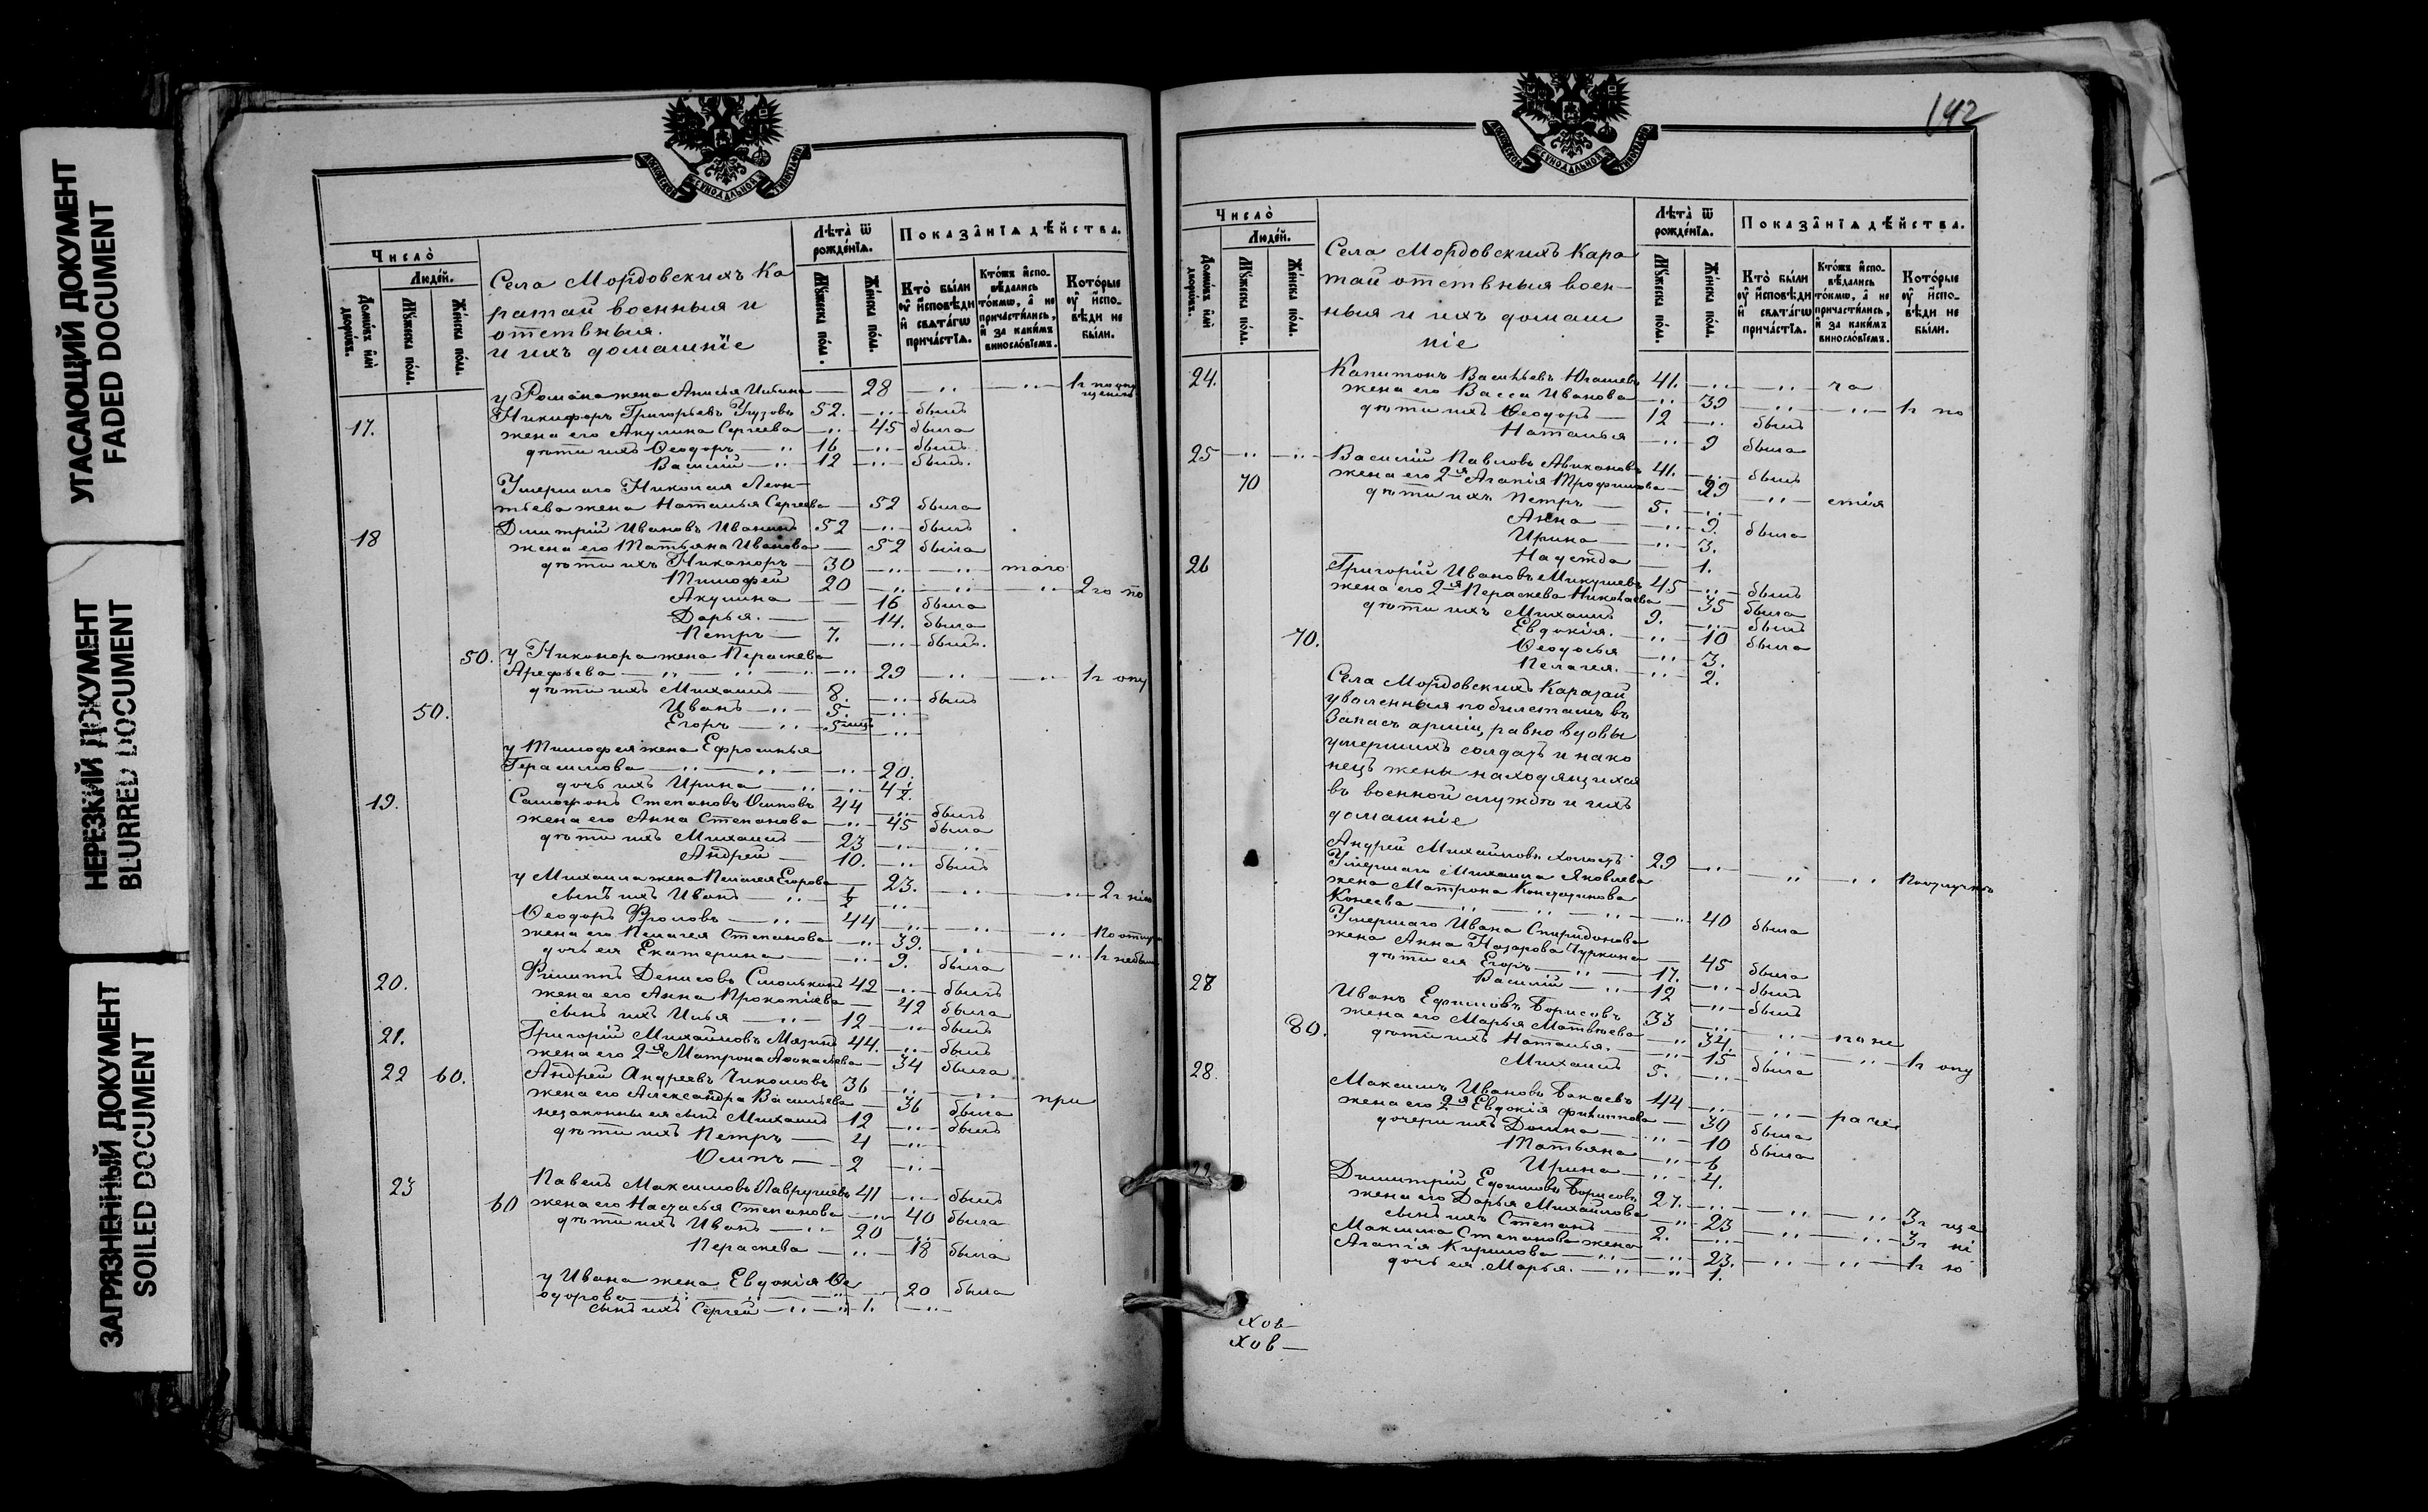 УГАСАЮЩИЙ ДОКУМЕНТ
FADED DOCUMENT
НЕРЕЗКИЙ ДОКУМЕНТ
BLURRED DOCUMENT
ЗАГРЯЗНЕННЫЙ ДОКУМЕНТ
SOILED DOCUMENT
МОСКОВСКОЙ СѴНОДАЛЬНОЙ ТИПОГРАФІИ
Число̀
Людей.
Домѡвъ или дворѡвъ.
Мꙋжеска полꙋ.
Женска полꙋ.
Села Мордовскихъ Ка
ратай военныя и
отствныя.
и ихъ домашніе
Лѣта ѿ рожденїѧ.
Мꙋжеска полꙋ.
Женска полꙋ.
Показанїѧ дѣйства.
Кто были оу исповѣди и свѧтагѡ причастїѧ.
Ктожъ исповѣдались токмѡ, а не причастились, и за какимъ винословїемъ.
Которые оу исповѣди не были.
у Романа жена Анисья Ильина — 28 — " — — " — 1 г по опу
щенію
17. Никифоръ Григорьевъ 52. — " — былъ
жена его Акулина Сергѣева — " — 45 была
дѣти ихъ Ѳеодоръ — " 16 — " — былъ
Василій — " — 12 — " — былъ.
Умершаго Николая Леон—
тьева жена Наталья Сергѣева — 52 была
18 Димитрій Ивановъ Иванинъ 52 — " — былъ
жена его Татьяна Иванова — 52 была
дѣти ихъ Никаноръ — 30 — " — — " — таго
Тимофей 20 — " — — " — — " — 2 го по
Акулина — — 16 была
Дарья. — — 14. была
Петръ — 7. — " — былъ.
50. у Никонора жена Параскева
Арефьева — " — " — " — 29 — " — — " — 1 г опу
дѣти ихъ Михаилъ — 8. — " — былъ
50. Иванъ — " — 5. — " —
Егоръ — " — 5 мцъ — " —
у Тимофея жена Ефросинья
Герасимова — " — " — — " — 20.
дочь ихъ Ирина — " — " — 4 1/2.
19. Самсонъ Степановъ Осиповъ 44 — " — былъ
жена его Анна Степанова — " — 45 была
дѣти ихъ Михаилъ — 23 — " — — " —
Андрей — 10. — " — былъ
у Михаила жена Пелагея Егорова — 23. — " — — " — 2 г нію
сынъ ихъ Иванъ — " — 1/2 — " —
Ѳеодоръ Фроловъ — " — 44 — " — — " — — " — По отлу
жена его Пелагея Степанова — " — 39. — " — — " — 1 г небы
дочь ея Екатерина — — " — 9. была
20. Филиппъ Денисовъ Смолькинъ 42 — " — былъ
жена его Анна Прокопіева — 42 была
сынъ ихъ Илья — " — 12 — " — былъ
21. Григорій Михайловъ Мязинъ 44. — " — былъ
жена его 2-я Матрона Аѳонасьева — 34 была
22 60. Андрей Андреевъ Чикомовъ 36 — " — — " — при
жена его Александра Васильева — 36 была
незаконный ея сынъ Михаилъ 12 — " — былъ
дѣти ихъ Петръ — 4 — " —
Осипъ — 2 — " —
23 Павелъ Максимовъ Лаврушевъ 41 — " — былъ
60 жена его Настасья Степанова — " — 40 была
дѣти ихъ Иванъ — " — 20 — " —
Параскева — " — 18 была
у Ивана жена Евдокія Ѳе
одорова — " — " — " — 20 была
сынъ ихъ Сергей — " — " — 1. — " —
142
МОСКОВСКОЙ СѴНОДАЛЬНОЙ ТИПОГРАФІИ
Число̀
Людей.
Домѡвъ или дворѡвъ.
Мꙋжеска полꙋ.
Женска полꙋ.
Села Мордовскихъ Кара
тай отствныя воен—
ныя и ихъ домаш
ніе
Лѣта ѿ рожденїѧ.
Мꙋжеска полꙋ.
Женска полꙋ.
Показанїѧ дѣйства.
Кто были оу исповѣди и свѧтагѡ причастїѧ.
Ктожъ исповѣдались токмѡ, а не причастились, и за какимъ винословїемъ.
Которые оу исповѣди не были.
24. Капитонъ Васильевъ Юлашевъ 41. — " — — " — ча
жена его Васса Иванова — " — 39 — " — — " — 1 г по
дѣти ихъ Ѳеодоръ — 12 — " — былъ
Наталья — " — 9 была
25 — " — — " — Василій Павловъ 41. — " — былъ
70 жена его 2-я Агапія Трофимова — 29 — " — стія
дѣти ихъ Петръ — 5. — " —
Анна — — " — 9. была
Ирина — — " — 3.
Надежда — 1.
26 Григорій Ивановъ Микушевъ 45 — " — былъ
жена его 2-я Параскева Николаева — 35 была
дѣти ихъ Михаилъ 9. — " — былъ
70. Евдокія. — " — 10 была
Ѳеодосья — " — 3.
Пелагея. — " — 2.
Села Мордовскихъ Каратай
уволенныя по билетамъ въ
Запасъ арміи, равно вдовы
умершихъ солдатъ и нако
нецъ жены находящихся
въ военной службѣ и ихъ
домашніе
Андрей Михайловъ холостъ 29 — " — — " — — " — По отлучкѣ
Умершаго Михаила Яковлева
жена Матрона
Конеева — " — " — " — 40 была
Умершаго Ивана Спиридонова
жена Анна Назарова Чуркина — 45 была
дѣти ея Егоръ — " — 17. — " — былъ
Василій — " — 12 — " — былъ
27 Иванъ Ефимовъ Борисовъ 33 — " — — " — гоне
80. жена его Марья Матвѣева — " — 34. — " — — " — 1 г опу
дѣти ихъ Наталья. — " — 15 была
Михаилъ 5. — " —
28. Максимъ Ивановъ Бакаевъ 44 — " — — " — раче
жена его 2-я Евдокія Филиппова — 30 была
дочери ихъ Домна — " — 10 была
Татьяна — " — 6
Ирина — " — 4.
29 Димитрій Ефимовъ Борисовъ 27. — " — — " — — " — 3 г ще
жена его Дарья Михайлова — " — 23 — " — — " — 3 г ні
сынъ ихъ Степанъ — 2. — " —
Максима Степанова жена
Агапія Кирилова — " — " — 23. — " — — " — 1 г ю
дочь ея Марья. — " — " — 1.
хов—
хов—